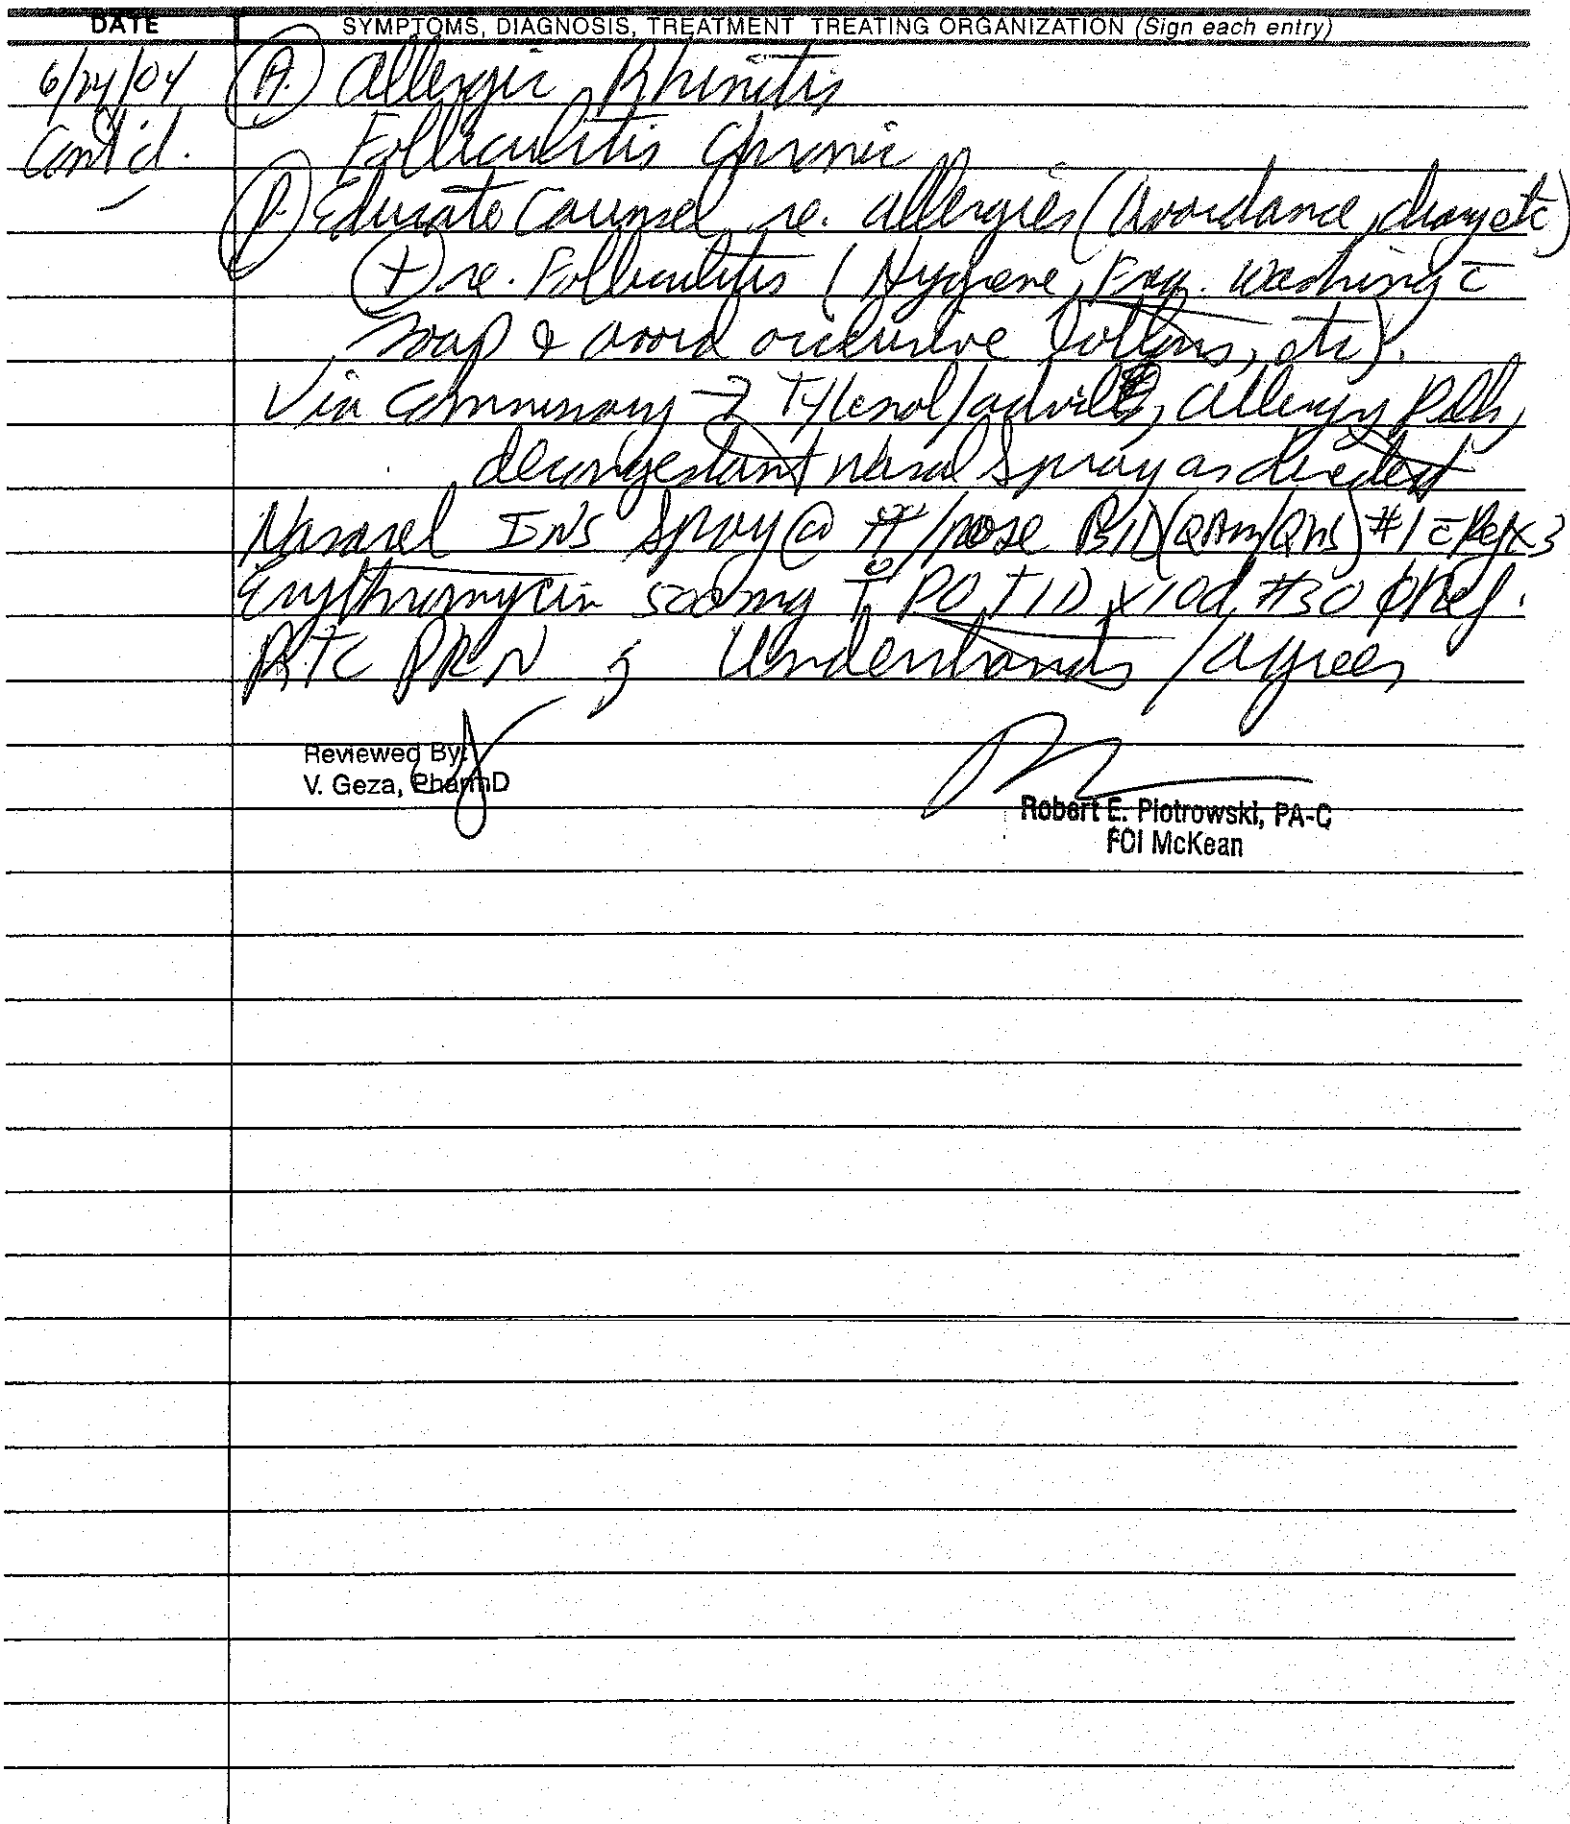 DATE SYMPTOMS, DIAGNOSIS, TREATMENT TREATING ORGANIZATION (Sign each entry)
6/24/04 (A.) Allergic Rhinitis
Cont'd. Folliculitis Chronic
(P.) Educate Counsel re. allergies (Avoidance, etc)
(+) re. Folliculitis (Hygiene, Freq. washing c̄
soap & avoid occlusive lotions, etc).
Via Commissary → Tylenol/advil, allergy
decongestant nasal spray as directed
Nasarel INS Spray @ ii/nose BID (QAM/QHS) #1 c̄ Ref x 3
Erythromycin 500mg i PO TID x 10d #30 ∅ Ref.
RTC PRN ; Understands / agrees
Reviewed By:
V. Geza, PharmD
Robert E. Piotrowski, PA-C
FCI McKean